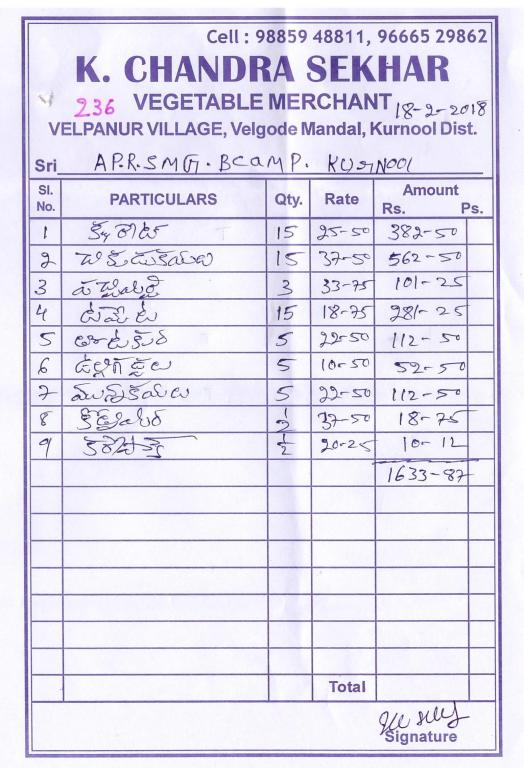 Cell : 98859 48811, 96665 29862
K. CHANDRA SEKHAR
236 VEGETABLE MERCHANT 18-2-2018
VELPANUR VILLAGE, Velgode Mandal, Kurnool Dist.
Sri A.P.R.S.M.G. BCamP. KURNOOl
Sl. No. PARTICULARS Qty. Rate Amount Rs. Ps.
1 క్యారెట్ 15 25-50 382-50
2 చిక్కుడుకాయలు 15 37-50 562-50
3 పచ్చిమిర్చి 3 33-75 101-25
4 టమాట 15 18-75 281-25
5 తోటకూర 5 22-50 112-50
6 ఉల్లిగడ్డలు 5 10-50 52-50
7 మునక్కాయలు 5 22-50 112-50
8 కొత్తిమీర ½ 37-50 18-75
9 కరివేపాకు ½ 20-25 10-12
1633-87
Total
Signature